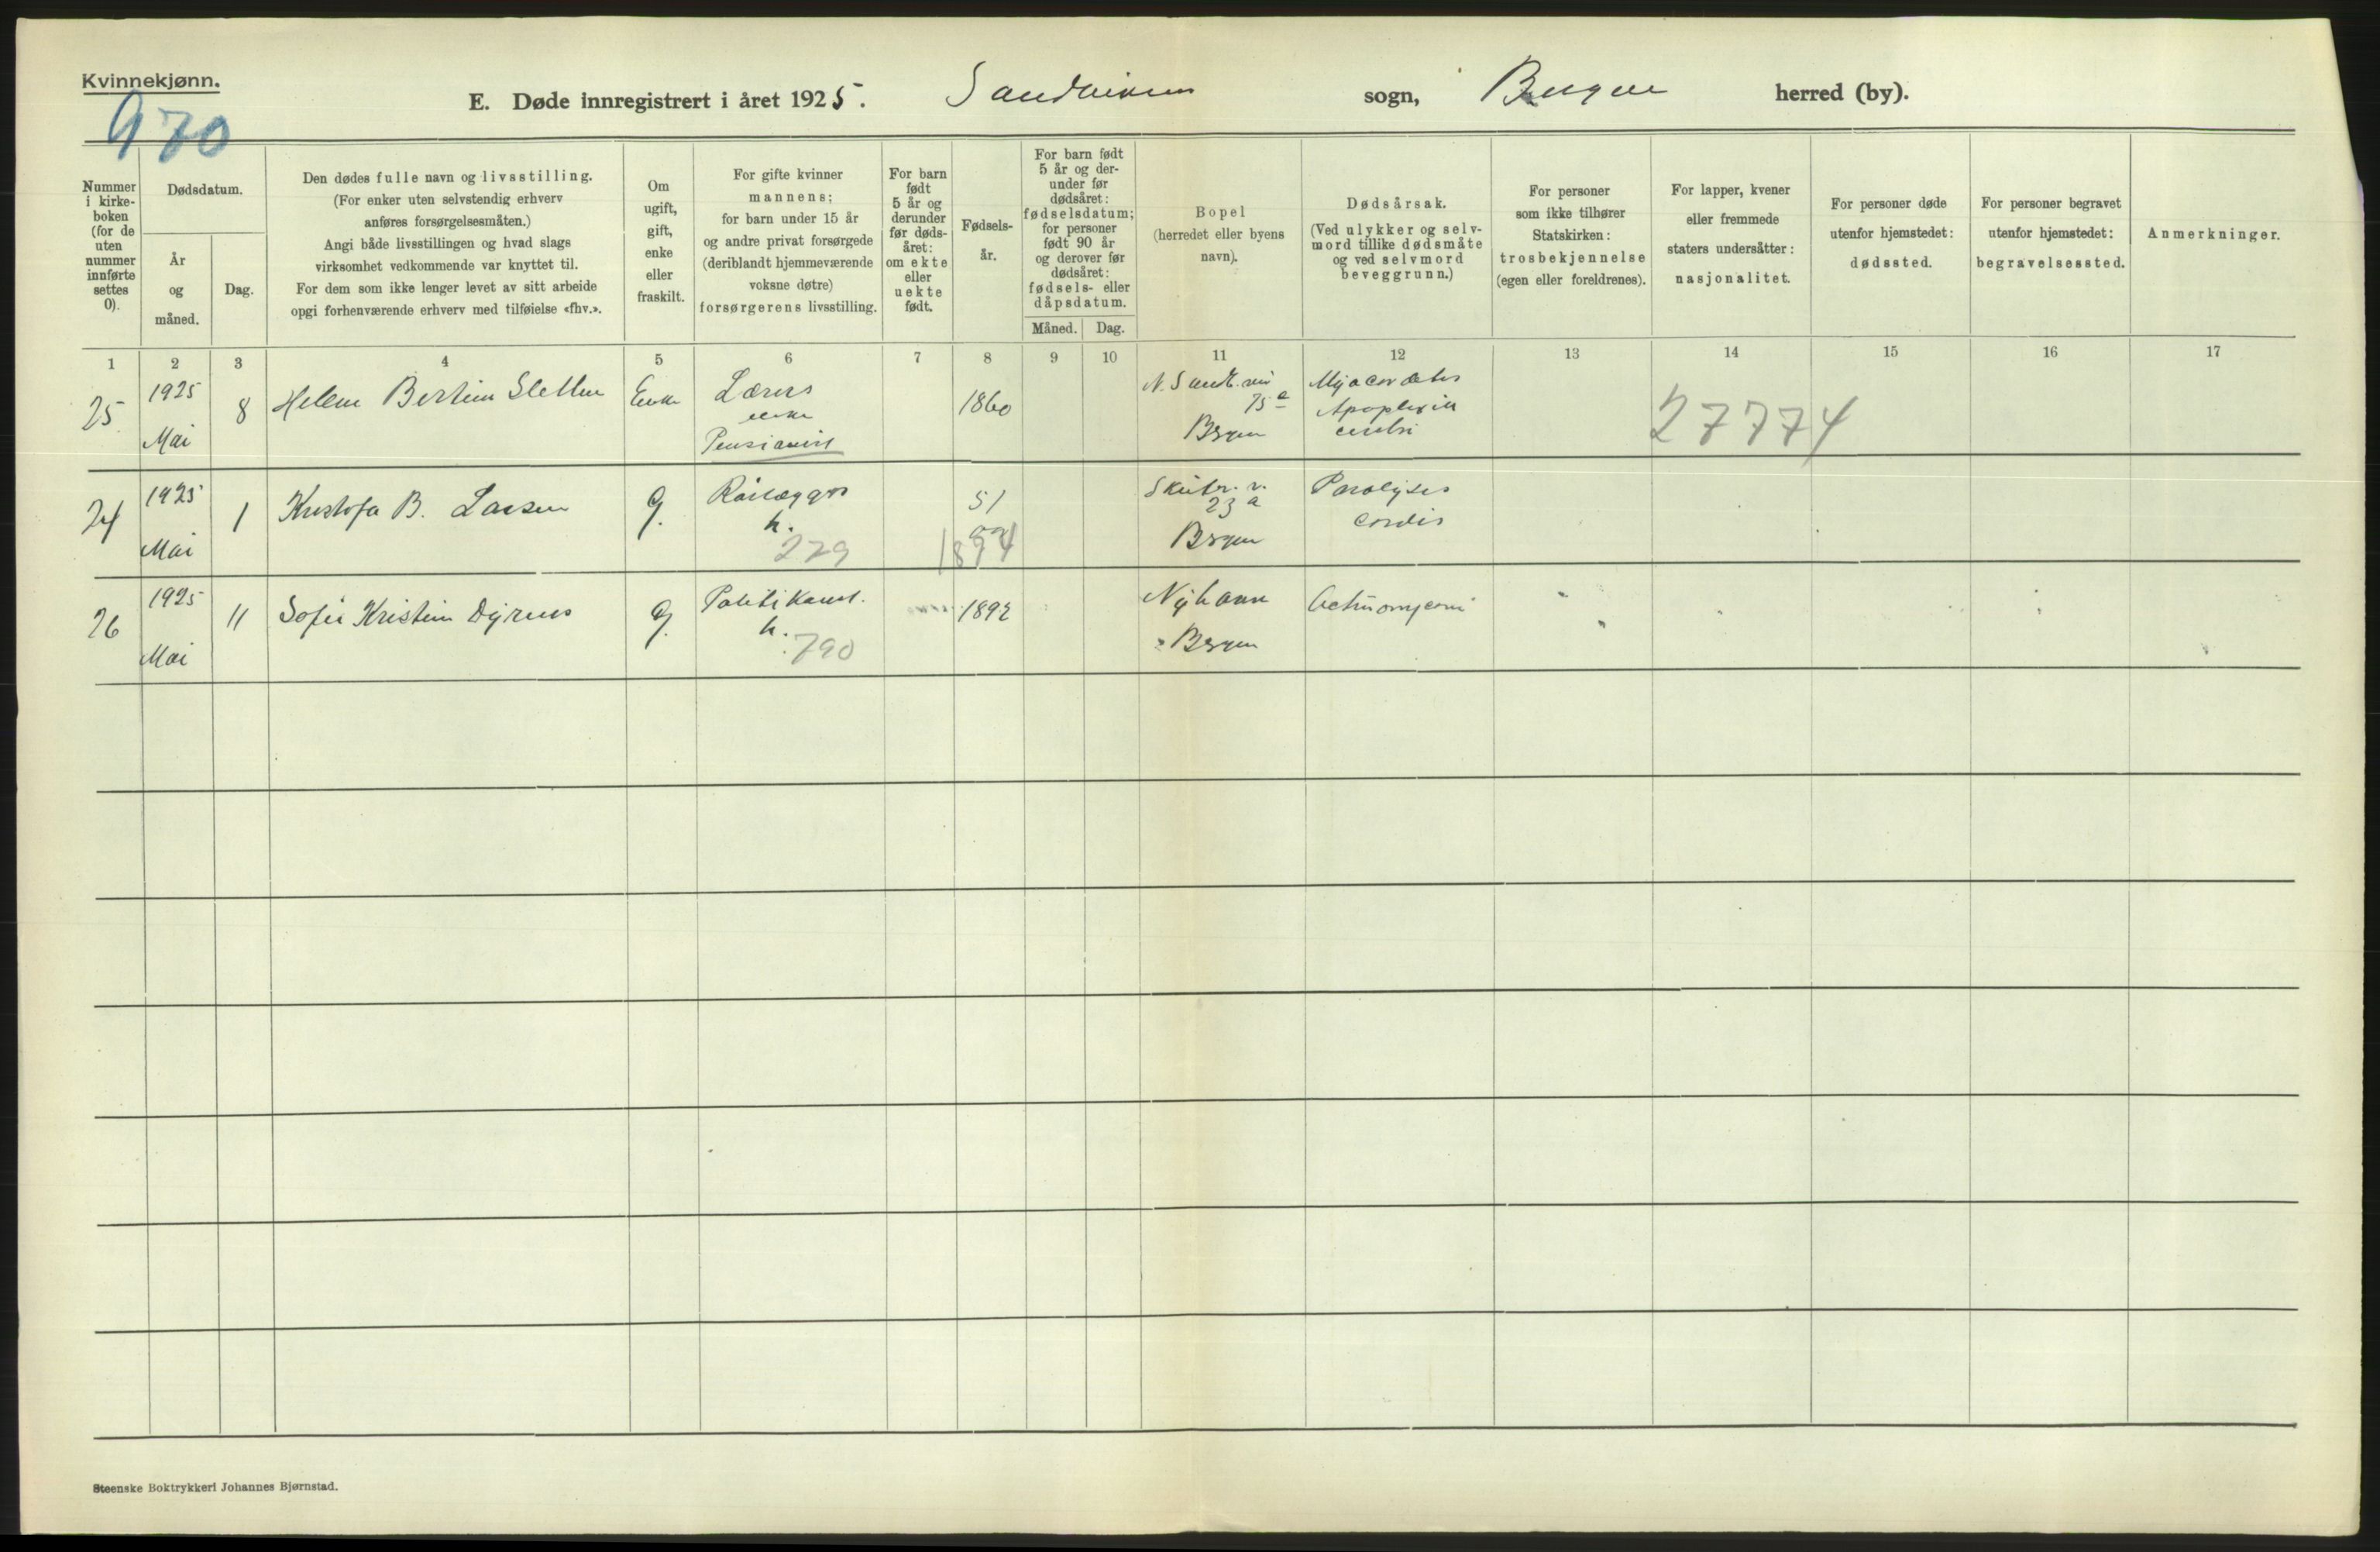 Kvinnekjønn.
970
E. Døde innregistrert i året 1925. Sandviken sogn, Bergen herred (by).
Nummer i kirke-boken (for de uten nummer innførte settes 0).
Dødsdatum.
År og måned.
Dag.
Den dødes fulle navn og livsstilling.
(For enker uten selvstendig erhverv
anføres forsørgelsesmåten.)
Angi både livsstillingen og hvad slags
virksomhet vedkommende var knyttet til.
For dem som ikke lenger levet av sitt arbeide
opgi forhenværende erhverv med tilføielse «fhv.».
Om
ugift,
gift,
enke
eller
fraskilt.
For gifte kvinner
mannens;
for barn under 15 år
og andre privat forsørgede
(deriblandt hjemmeværende
voksne døtre)
forsørgerens livsstilling.
For barn
født
5 år og
derunder
før døds-
året:
om ekte
eller
uekte
født.
Fødsels-
år.
For barn født
5 år og der-
under før
dødsåret:
fødselsdatum;
for personer
født 90 år
og derover før
dødsåret:
fødsels- eller
dåpsdatum.
Måned. Dag.
Bopel
(herredet eller byens
navn).
Dødsårsak.
(Ved ulykker og selv-
mord tillike dødsmåte
og ved selvmord
beveggrunn.)
For personer
som ikke tilhører
Statskirken:
trosbekjennelse
(egen eller foreldrenes).
For lapper, kvener
eller fremmede
staters undersåtter:
nasjonalitet.
For personer døde
utenfor hjemstedet:
dødssted.
For personer begravet
utenfor hjemstedet:
begravelsessted.
Anmerkninger.
1 2 3 4 5 6 7 8 9 10 11 12 13 14 15 16 17
25 1925 Mai 8 Helene Bertine Sletten Enke Lærers enke Pensionist 1860 N. Sandv. vei 75 a Bergen Apoplexia cerebri 27774
24 1925 Mai 1 Kristofa B. Larsen g. Rørlægger h. 229 51 1874 Skutev. v. 23 a Bergen Paralysis cordis
26 1925 Mai 11 Sofie Kristine Dyrnes g. Politikonst. h. 790 1892 Nyhavn Bergen
Steenske Boktrykkeri Johannes Bjørnstad.